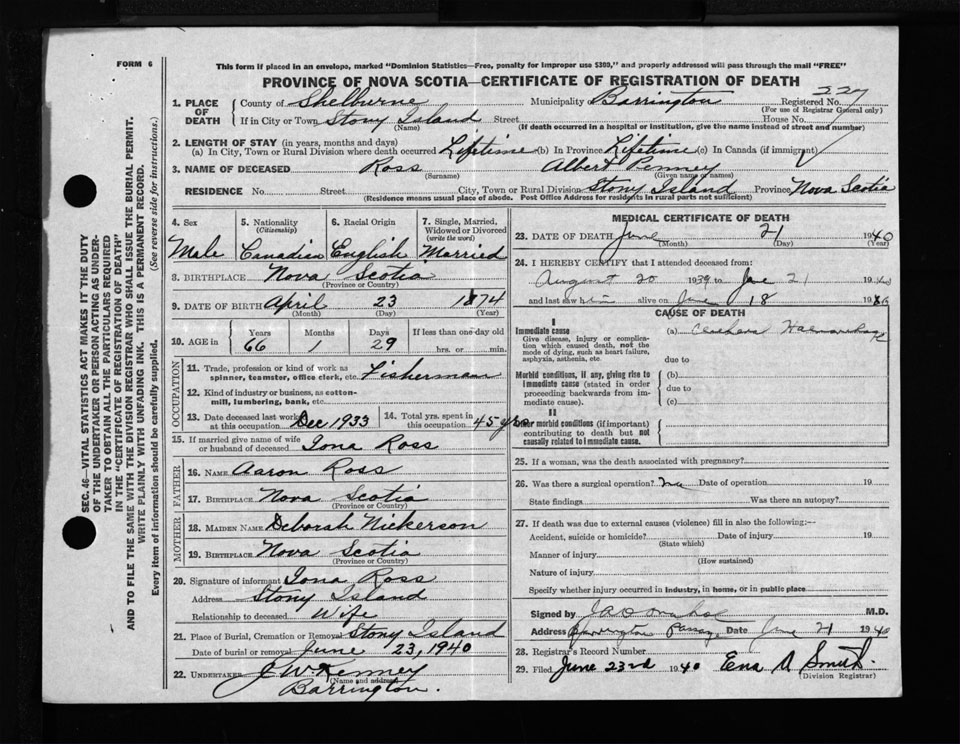 FORM 6
This form if placed in an envelope, marked "Dominion Statistics—Free, penalty for improper use $300," and properly addressed will pass through the mail "FREE"
PROVINCE OF NOVA SCOTIA—CERTIFICATE OF REGISTRATION OF DEATH
227
1. PLACE OF DEATH
County of Shelburne Municipality Barrington Registered No.
(For use of Registrar General only)
If in City or Town Stony Island Street House No.
(Name) (If death occurred in a hospital or institution, give the name instead of street and number)
2. LENGTH OF STAY (in years, months and days)
(a) In City, Town or Rural Division where death occurred Lifetime (b) In Province Lifetime (c) In Canada (if immigrant)
3. NAME OF DECEASED Ross Albert Penney
(Surname) (Given name or names)
RESIDENCE No. Street City, Town or Rural Division Stony Island Province Nova Scotia
(Residence means usual place of abode. Post Office Address for residents in rural parts not sufficient)
4. Sex
Male
5. Nationality
(Citizenship)
Canadian
6. Racial Origin
English
7. Single, Married, Widowed or Divorced
(write the word)
Married
8. BIRTHPLACE Nova Scotia
(Province or Country)
9. DATE OF BIRTH April 23 1874
(Month) (Day) (Year)
10. AGE in
Years Months Days If less than one day old
66 1 29 hrs. or min.
OCCUPATION
11. Trade, profession or kind of work as
spinner, teamster, office clerk, etc. Fisherman
12. Kind of industry or business, as cotton-
mill, lumbering, bank, etc.
13. Date deceased last worked
at this occupation Dec 1933
14. Total yrs. spent in
this occupation 45 yrs
15. If married give name of wife
or husband of deceased Iona Ross
FATHER
16. NAME Aaron Ross
17. BIRTHPLACE Nova Scotia
(Province or Country)
MOTHER
18. MAIDEN NAME Deborah Nickerson
19. BIRTHPLACE Nova Scotia
(Province or Country)
20. Signature of informant Iona Ross
Address Stony Island
Relationship to deceased Wife
21. Place of Burial, Cremation or Removal Stony Island
Date of burial or removal June 23, 1940
22. UNDERTAKER J W Kenney
(Name and address)
Barrington.
MEDICAL CERTIFICATE OF DEATH
23. DATE OF DEATH June 21 1940
(Month) (Day) (Year)
24. I HEREBY CERTIFY that I attended deceased from:
August 20 1939 to June 21 1940
and last saw him alive on June 18 19
CAUSE OF DEATH
I
Immediate cause
Give disease, injury or complication which caused death, not the mode of dying, such as heart failure, asphyxia, asthenia, etc.
(a)
due to
Morbid conditions, if any, giving rise to immediate cause (stated in order proceeding backwards from immediate cause).
(b)
due to
(c)
II
Other morbid conditions (if important) contributing to death but not causally related to immediate cause.
25. If a woman, was the death associated with pregnancy?
26. Was there a surgical operation? no Date of operation 19
State findings Was there an autopsy?
27. If death was due to external causes (violence) fill in also the following:—
Accident, suicide or homicide? Date of injury 19
(State which)
Manner of injury
(How sustained)
Nature of injury
Specify whether injury occurred in industry, in home, or in public place
Signed by M.D.
Address Barrington Passage Date June 21 1940
28. Registrar's Record Number
29. Filed June 23rd 1940 Ena A Smith.
(Division Registrar)
SEC. 46—VITAL STATISTICS ACT MAKES IT THE DUTY
OF THE UNDERTAKER OR PERSON ACTING AS UNDER-
TAKER TO OBTAIN ALL THE PARTICULARS REQUIRED
IN THE "CERTIFICATE OF REGISTRATION OF DEATH"
AND TO FILE THE SAME WITH THE DIVISION REGISTRAR WHO SHALL ISSUE THE BURIAL PERMIT.
WRITE PLAINLY WITH UNFADING INK. THIS IS A PERMANENT RECORD.
Every item of information should be carefully supplied. (See reverse side for instructions.)